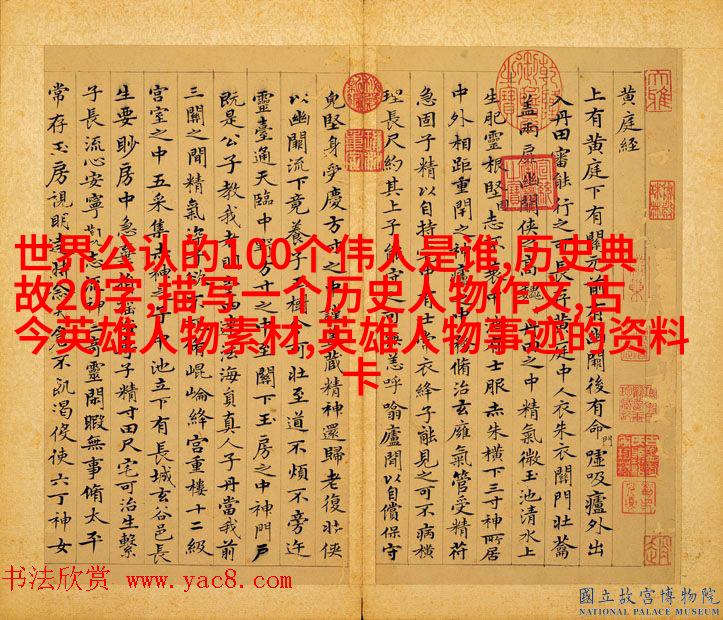 黄庭經
上有黄庭下有關元前有幽闕後有命門噓吸廬外出
入丹田審能行之可長存黄庭中人衣朱衣關門壯籥
蓋兩扉幽闕俠之高巍丹田之中精氣微玉池清水上
生肥靈根堅志不衰中池有士服赤朱橫下三寸神所居
中外相距重閉之神廬之中脩治玄廱氣管受精符
急固子精以自持宅中有士常衣絳子能見之可不病橫
理長尺約其上子能守之可無恙呼噏廬間以自償保守
皃堅身受慶方寸之中謹蓋藏精神還歸老復壯俠
以幽闕流下竟養子玉樹可壯至道不煩不旁迕
靈臺通天臨中野方寸之中至關下玉房之中神門戶
既是公子教我者明堂四達法海員真人子丹當我前
三關之間精氣深子欲不死脩崐崘絳宮重樓十二級
宮室之中五采集赤神之子中池立下有長城玄谷邑長
生要眇房中急棄捐淫俗專子精寸田尺宅可治生繫
子長流心安寧觀志流神三奇靈閑暇無事脩太平
常存玉房視明達時念大倉不飢渴役使六丁神女
世界公认的100个伟人是谁,历史典
故20字,描写一个历史人物作文,古
今英雄人物素材,英雄人物事迹的资料
卡
书法欣赏 www.yac8.com
國立故宮博物院
NATIONAL PALACE MUSEUM